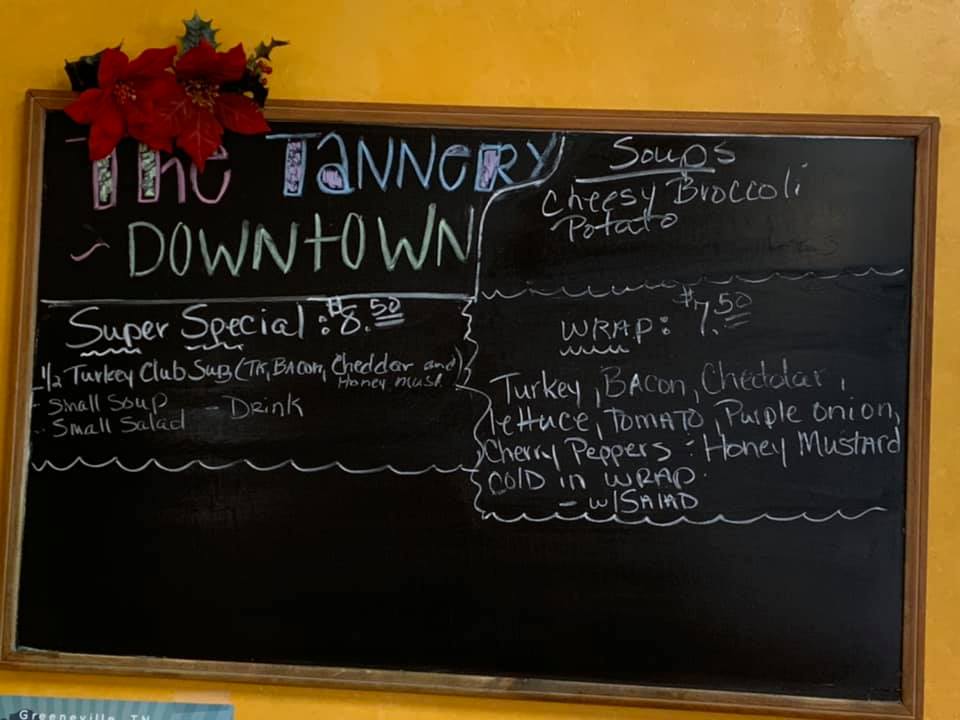 The Tannery
~ Downtown
Super Special: $8.50
- 1/2 Turkey Club Sub (TK, Bacon, Cheddar and
Honey Must.
- Small Soup
- Drink
- Small Salad
Soups
Cheesy Broccoli
Potato
WRAP: $7.50
Turkey, Bacon, Cheddar,
lettuce, Tomato, Purple onion,
Cherry Peppers : Honey Mustard
cold in wrap.
- w/ Salad
Greeneville, TN